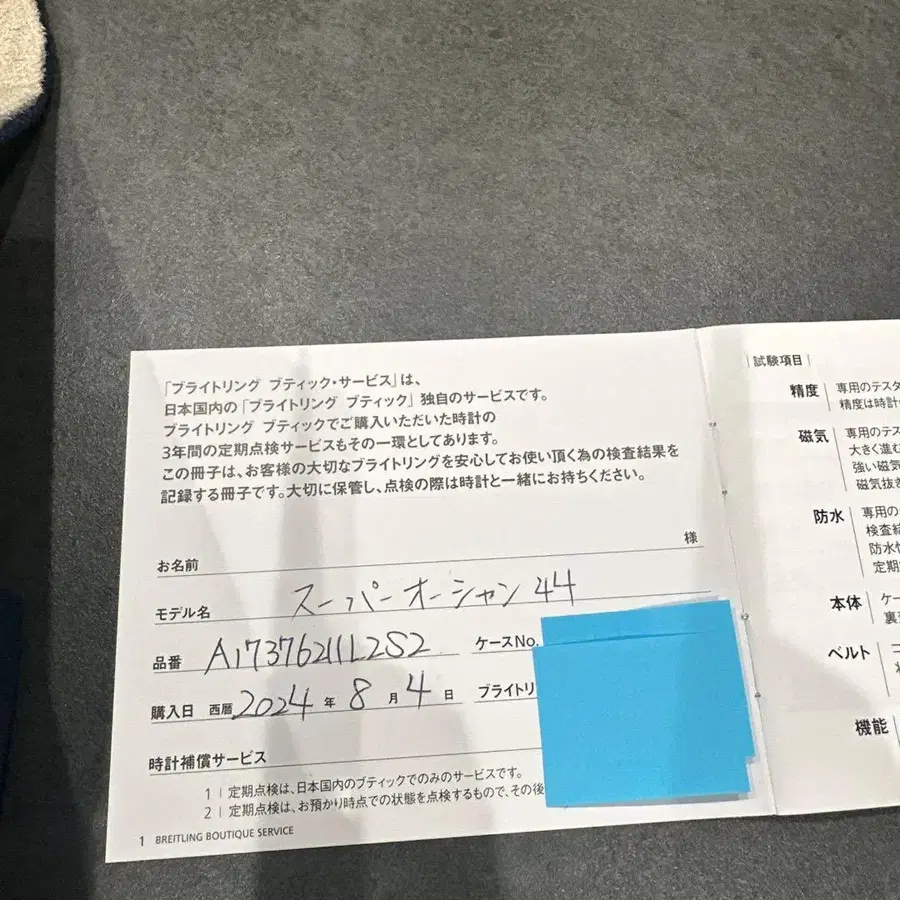 「ブライトリング ブティック・サービス」は、
日本国内の「ブライトリング ブティック」独自のサービスです。
ブライトリング ブティックでご購入いただいた時計の
3年間の定期点検サービスもその一環としてあります。
この冊子は、お客様の大切なブライトリングを安心してお使い頂く為の検査結果を
記録する冊子です。大切に保管し、点検の際は時計と一緒にお持ちください。
お名前 様
モデル名 スーパーオーシャン44
品番 A173762111L2S2 ケースNo.
購入日 西暦 2024 年 8 月 4 日 ブライトリ
時計補償サービス
1 | 定期点検は、日本国内のブティックでのみのサービスです。
2 | 定期点検は、お預かり時点での状態を点検するもので、その後
1 BREITLING BOUTIQUE SERVICE
| 試験項目 |
精度 専用のテスタ
精度は時計
磁気 専用のテス
大きく進む
強い磁気
磁気抜き
防水 専用の
検査結
防水性
定期
本体 ケー
ベルト
機能